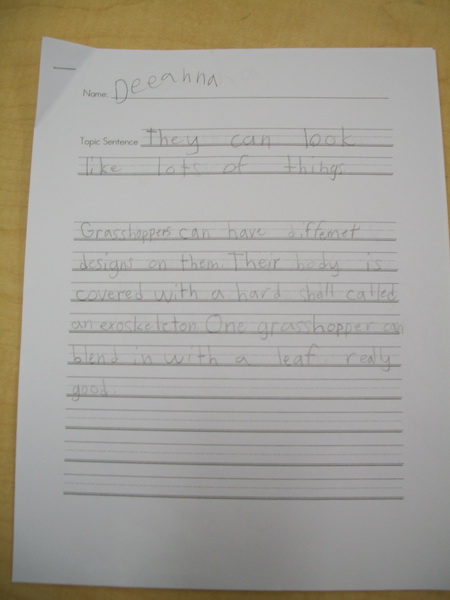 Name: Deeanna
Topic Sentence They can look
like lots of things.
Grasshoppers can have diffemet
designs on them. Their body is
covered with a hard shall called
an exoskeleton. One grasshopper can
blend in with a leaf really
good.